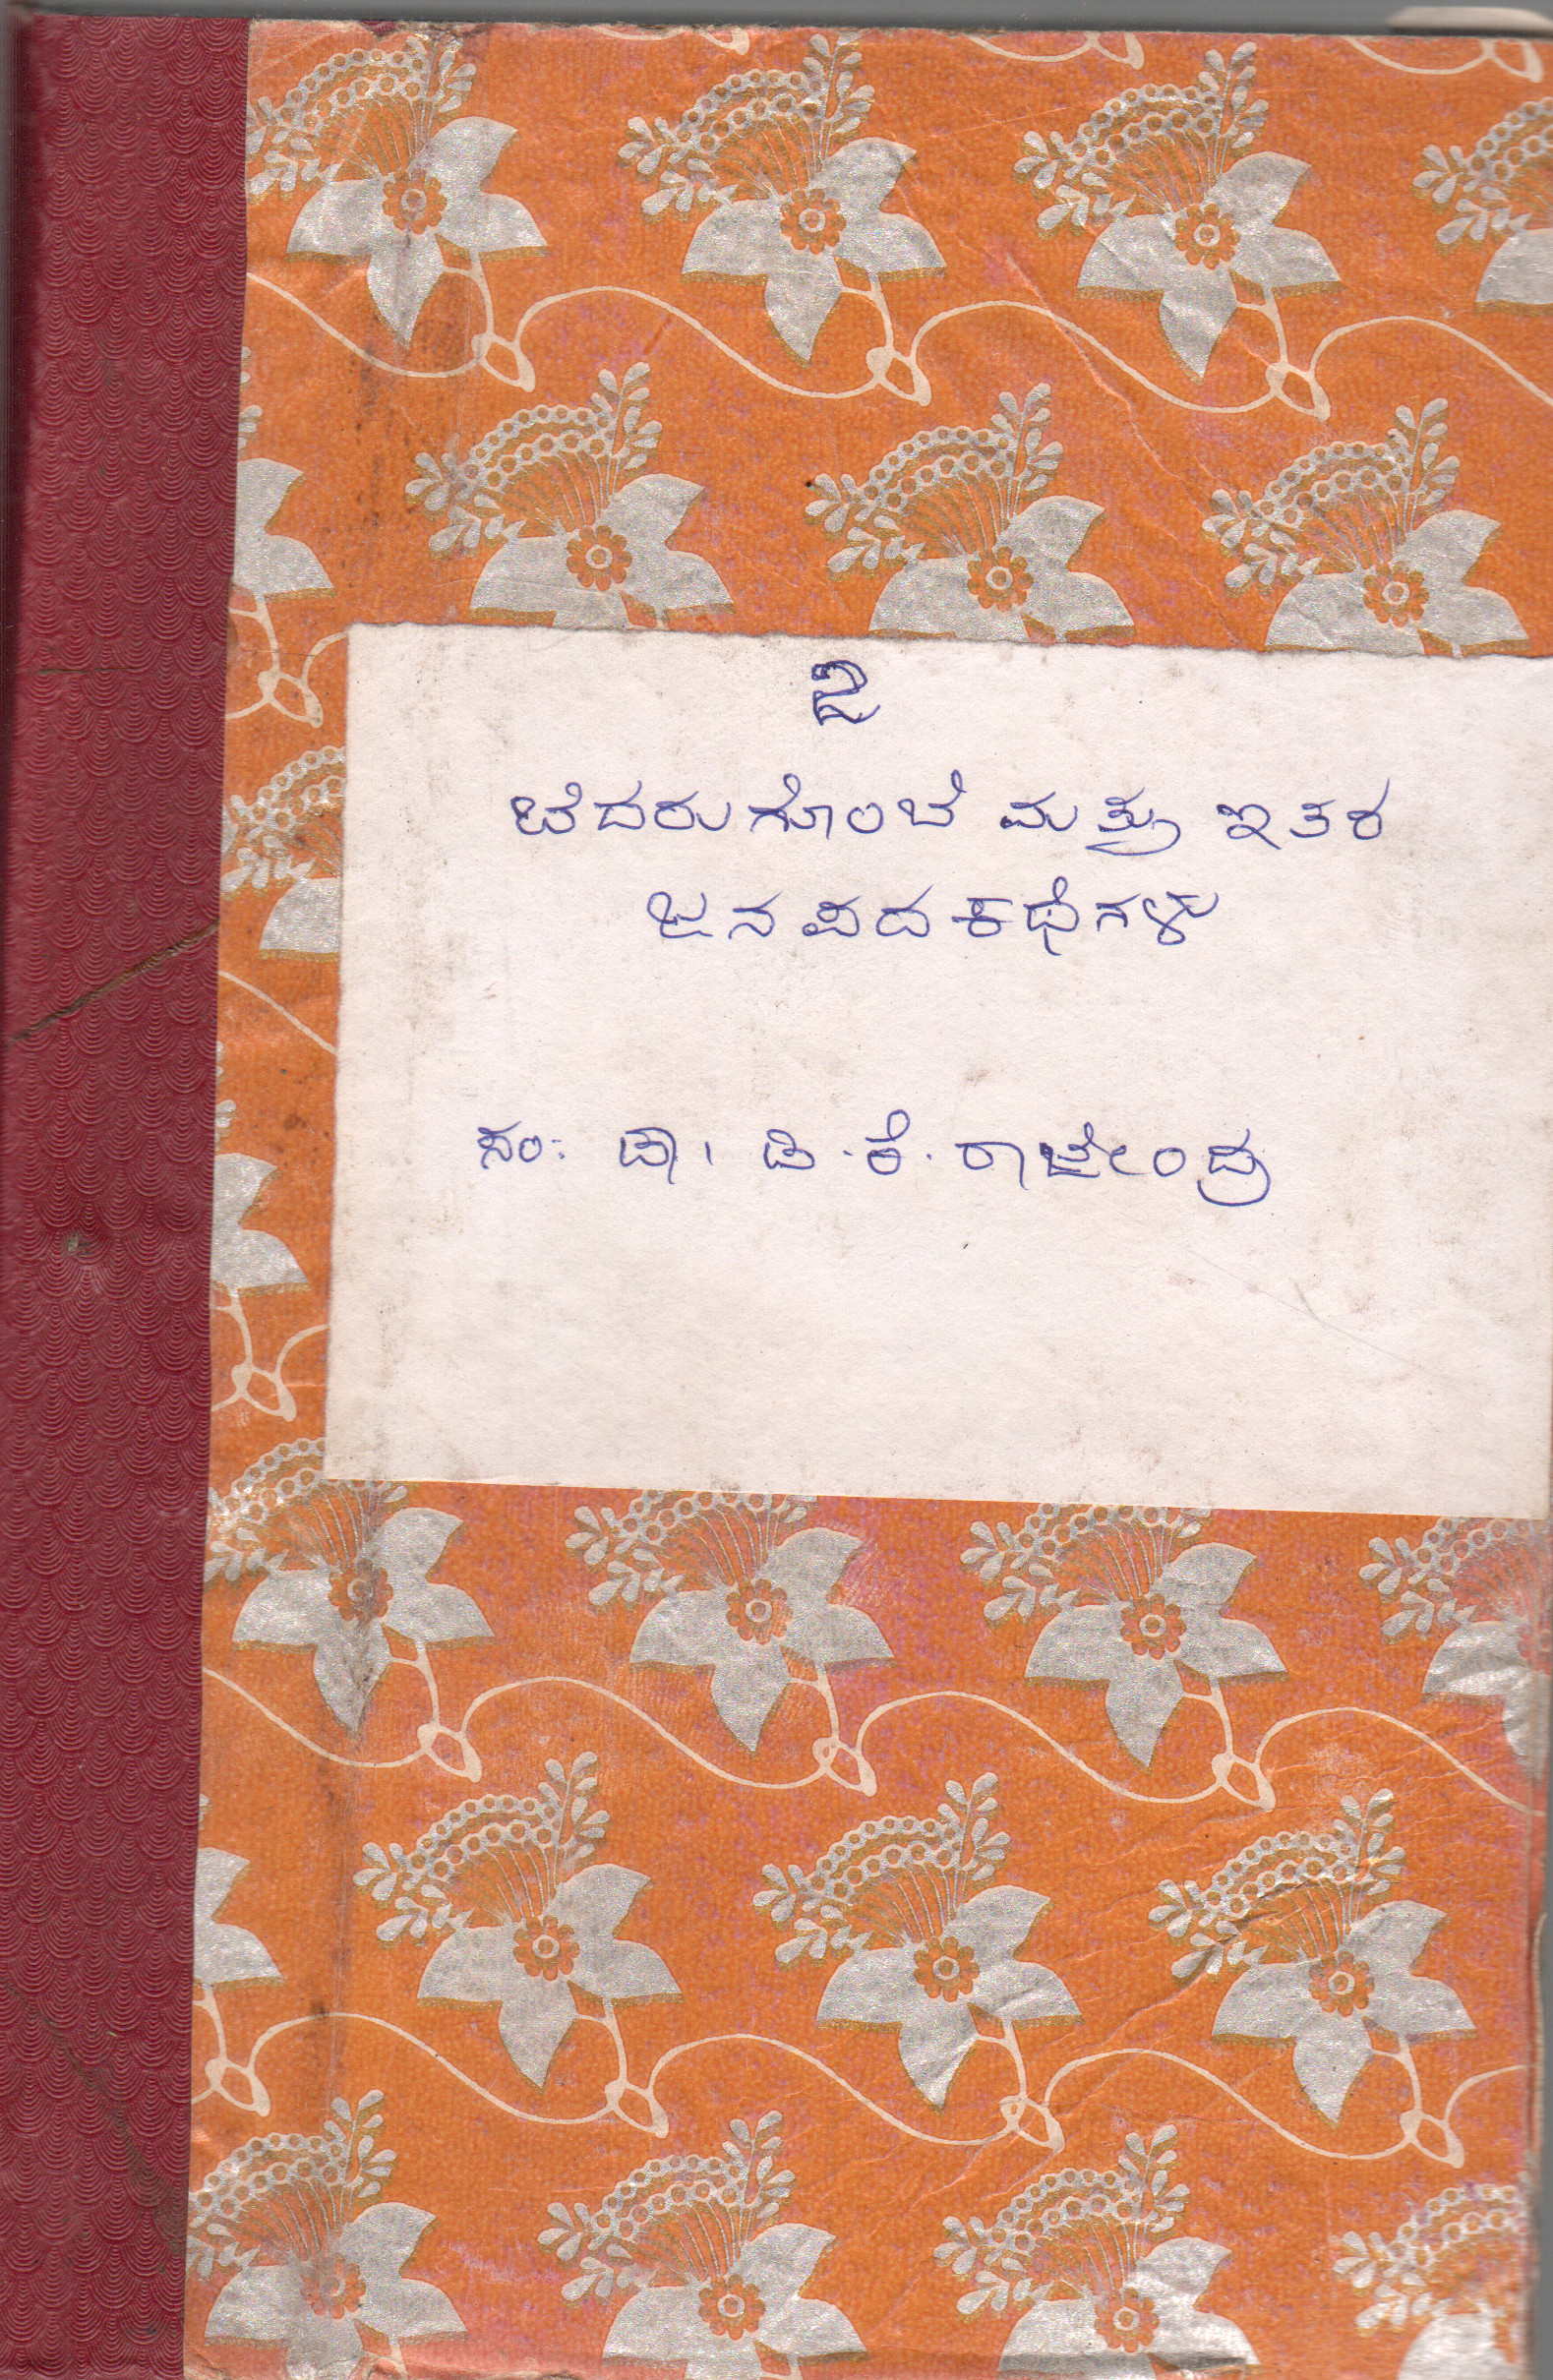 ೨
ಬೆದರುಗೊಂಬೆ ಮತ್ತು ಇತರ
ಜನಪದ ಕಥೆಗಳು
ಸಂ: ಡಾ। ಡಿ.ಕೆ. ರಾಜೇಂದ್ರ